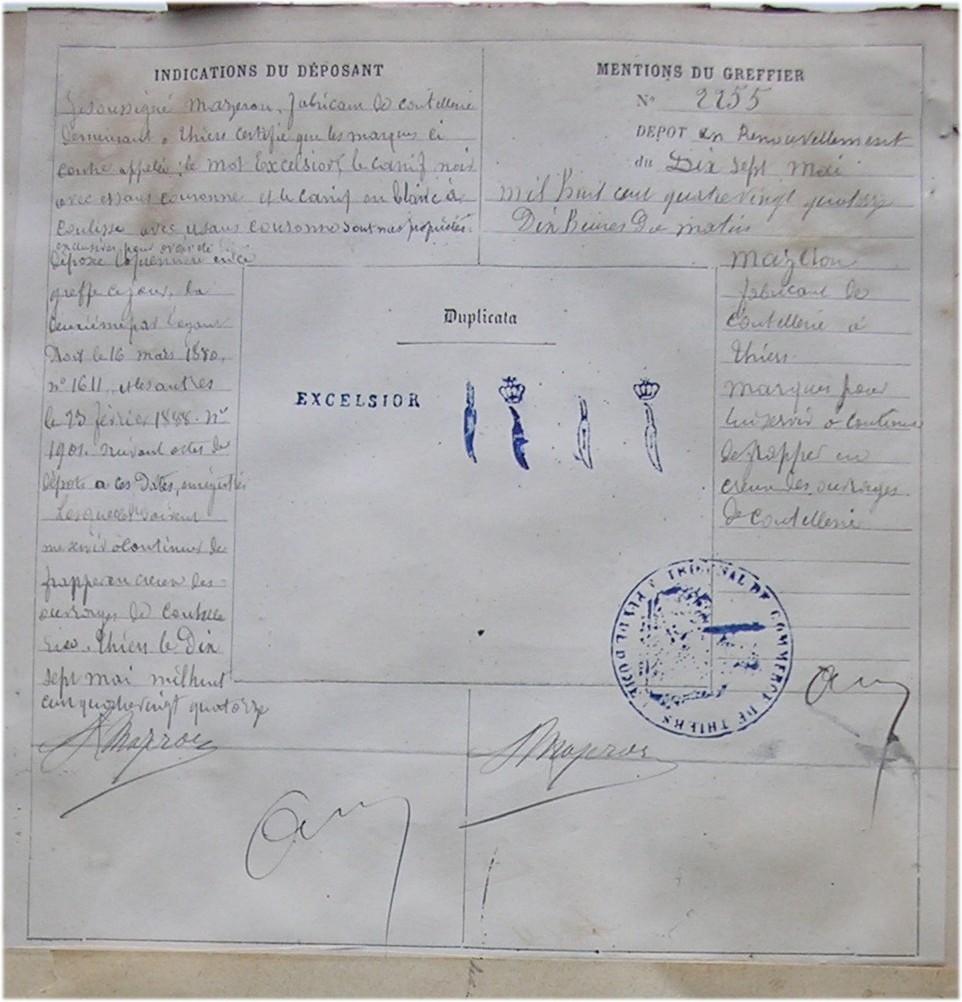 INDICATIONS DU DÉPOSANT
Je soussigné Mazeron, fabricant de coutellerie
demeurant à Thiers certifie que les marques ci
contre appelée: le mot Excelsior, le canif noir
avec et sans couronne et le canif en blanc à
coulisse avec et sans couronne sont mes propriétés
exclusives pour avoir été
déposé la première en ce
greffe ce jour, la
deuxième par
Doit le 16 mars 1880,
n° 1611, et les autres
le 23 février 1888. N°
1901. suivant actes de
dépôts à ces dates, enregistrés
me servir à continuer de
frapper en creux des
ouvrages de coutelle
rie. Thiers le Dix
sept mai mil huit
cent quatre vingt quatorze
MENTIONS DU GREFFIER
N° 2255
DEPOT en Renouvellement
du Dix sept Mai
mil huit cent quatre vingt quatorze
Dix heures du matin
Mazeron
fabricant de
coutellerie à
Thiers.
marques pour
lui servir à continuer
de frapper en
creux des ouvrages
de coutellerie
Duplicata
EXCELSIOR
TRIBUNAL DE COMMERCE DE THIERS
PUY-DE-DÔME